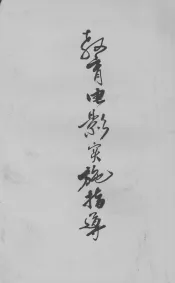 教育电影实施指导